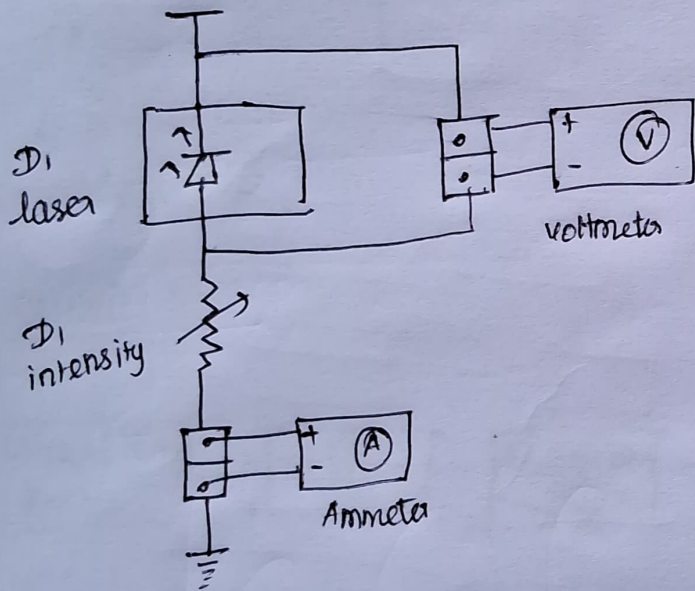 D1
laser
+
-
V
voltmeter
D1
intensity
+
-
A
Ammeter